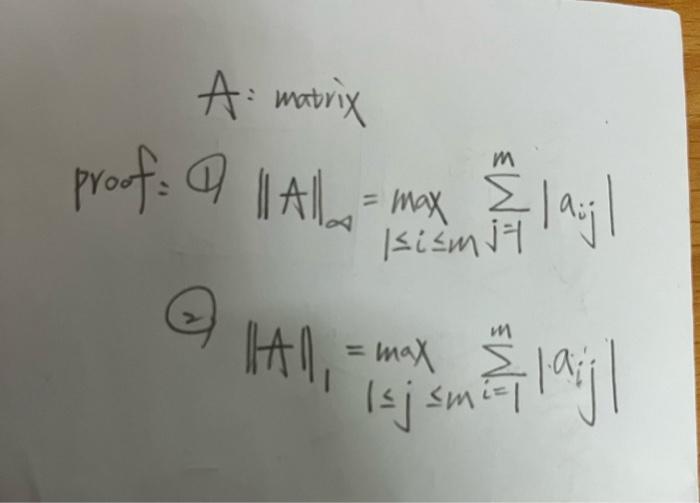 A: matrix
proof: ① ||A||∞ = max 1≤i≤m ∑ j=1 m |aij|
② ||A||1 = max 1≤j≤m ∑ i=1 m |aij|